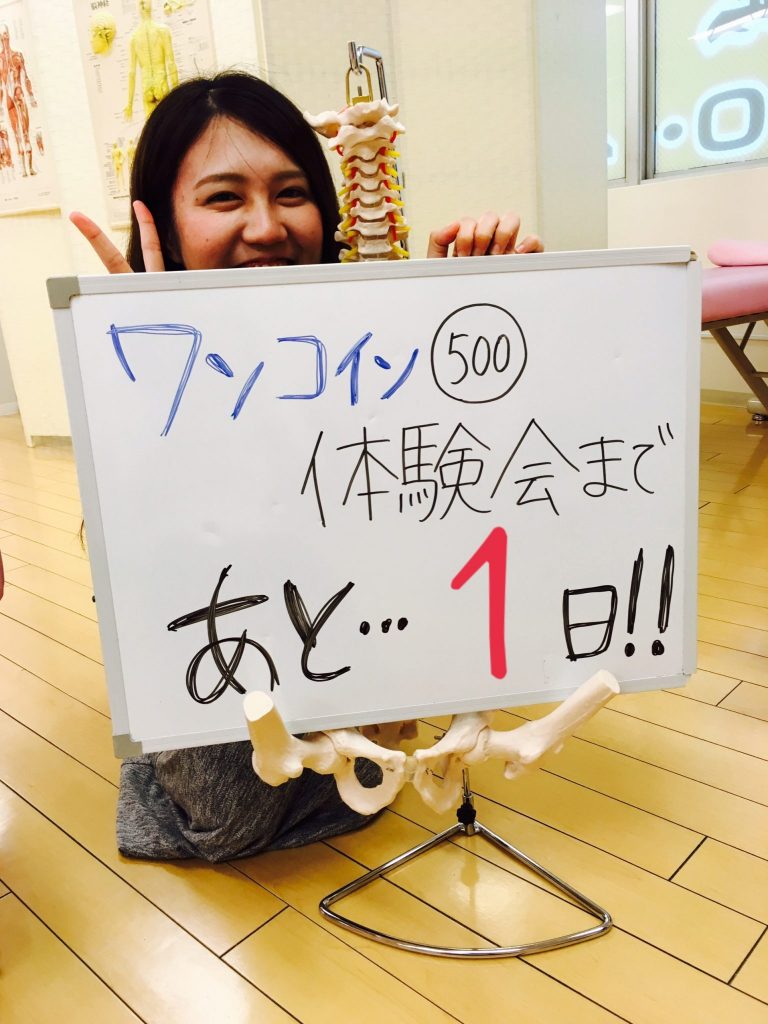 ワンコイン 500
体験会まで
あと… 1日!!